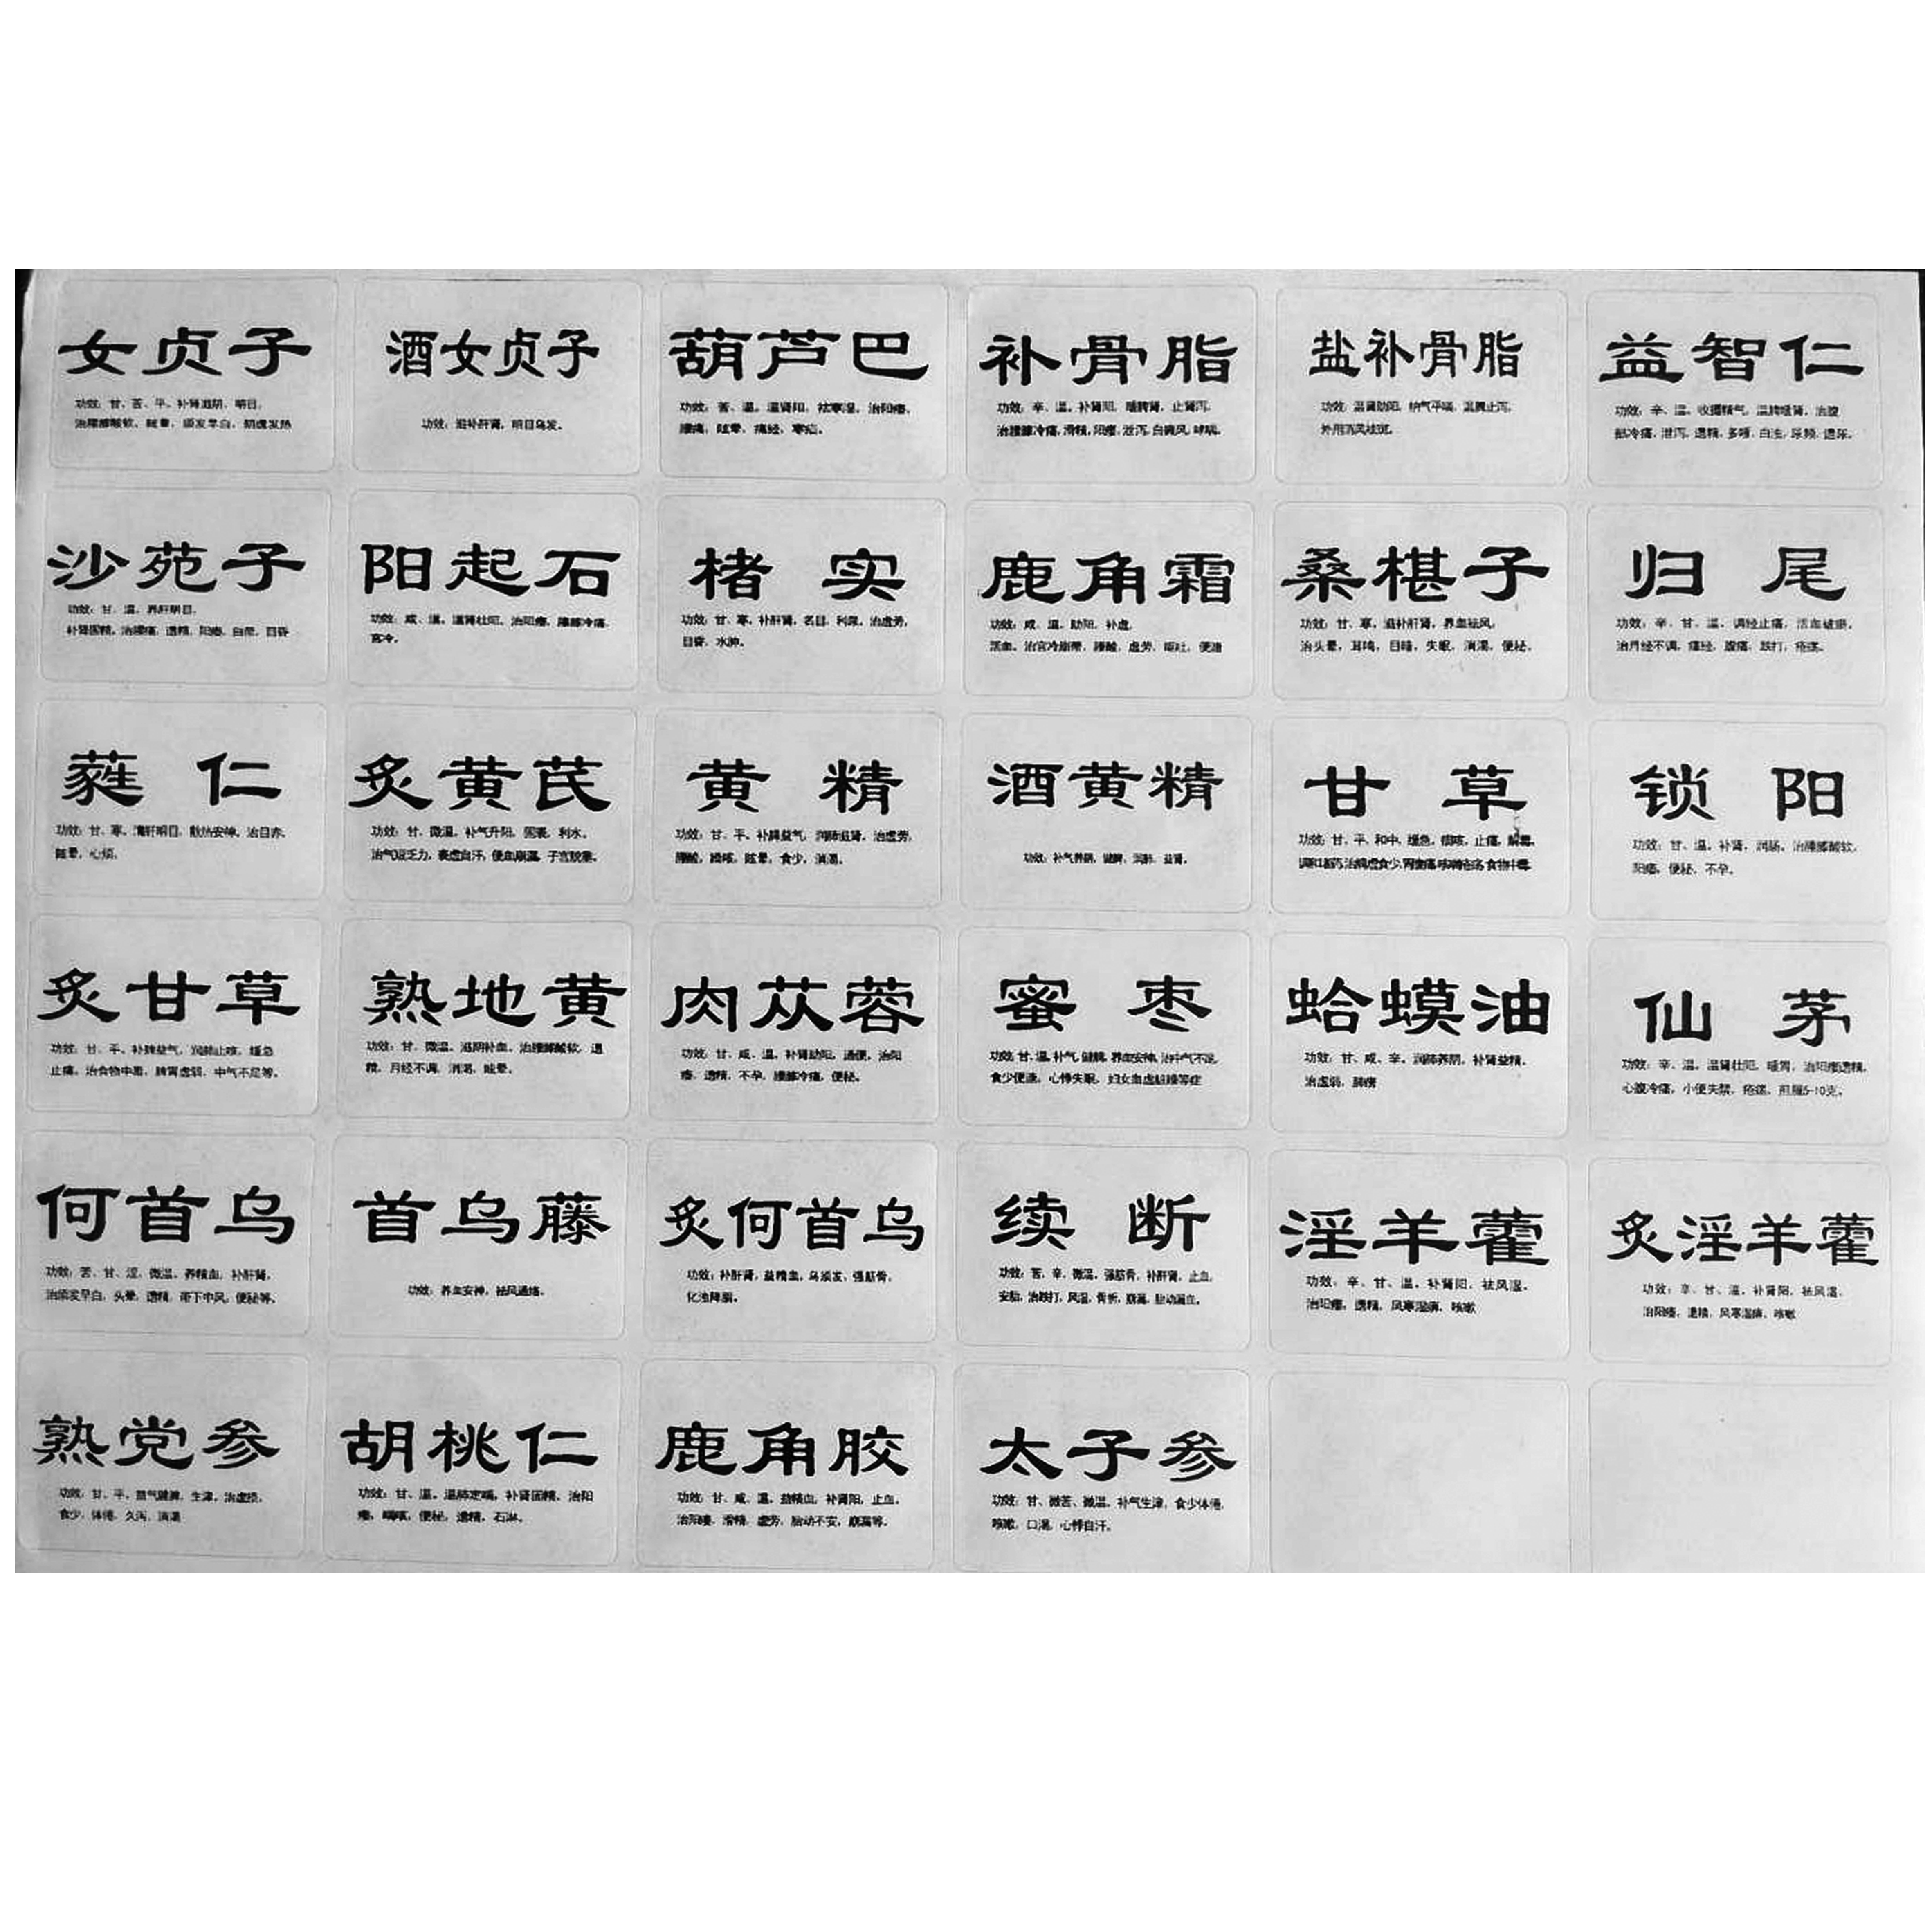 女贞子
功效：甘、苦、平。补肾滋阴，明目。
治腰膝酸软，眩晕，须发早白，阴虚发热
酒女贞子
功效：滋补肝肾，明目乌发。
葫芦巴
功效：苦、温。温肾阳，祛寒湿，治阳痿，
腰痛，眩晕，痛经，寒疝。
补骨脂
功效：辛、温。补肾阳，暖脾肾，止肾泻，
治腰膝冷痛，滑精，阳痿，泄泻，白癜风，哮喘。
盐补骨脂
功效：温肾助阳，纳气平喘，温脾止泻，
外用消风祛斑。
益智仁
功效：辛、温。收摄精气，温脾暖肾，治腹
部冷痛，泄泻，遗精，多唾，白浊，尿频，遗尿。
沙苑子
功效：甘、温。养肝明目，
补肾固精，治腰痛，遗精，阳痿，白带，目昏
阳起石
功效：咸、温。温肾壮阳，治阳痿，腰膝冷痛，
宫冷。
楮实
功效：甘、寒。补肝肾，名目，利尿，治虚劳，
目昏，水肿。
鹿角霜
功效：咸、温。助阳，补虚，
活血。治宫冷崩带，腰酸，虚劳，呕吐，便溏
桑椹子
功效：甘、寒。滋补肝肾，养血祛风，
治头晕，耳鸣，目暗，失眠，消渴，便秘。
归尾
功效：辛、甘、温。调经止痛，活血破瘀。
治月经不调，痛经，腹痛，跌打，疮疡。
蕤仁
功效：甘、寒。清肝明目，散热安神。治目赤，
眩晕，心烦。
炙黄芪
功效：甘、微温。补气升阳，固表，利水。
治气短乏力，表虚自汗，便血崩漏，子宫脱垂。
黄精
功效：甘、平。补脾益气，润肺滋肾，治虚劳，
腰酸，燥咳，眩晕，食少，消渴。
酒黄精
功效：补气养阴，健脾，润肺，益肾。
甘草
功效：甘、平。和中，缓急，祛痰，止痛，解毒，
锁阳
功效：甘、温。补肾，润肠。治腰膝酸软，
阳痿，便秘，不孕。
炙甘草
功效：甘、平。补脾益气，润肺止咳，缓急
止痛，治食物中毒，脾胃虚弱，中气不足等。
熟地黄
功效：甘、微温。滋阴补血。治腰膝酸软，遗
精，月经不调，消渴，眩晕。
肉苁蓉
功效：甘、咸、温。补肾助阳，通便，治阳
痿，遗精，不孕，腰膝冷痛，便秘。
蜜枣
功效：甘、温。补气，健脾，养血安神，治中气不足，
食少便溏，心悸失眠，妇女血虚脏躁等症
蛤蟆油
功效：甘、咸、辛。润肺养阴，补肾益精。
治虚弱，肺痨
仙茅
功效：辛、温。温肾壮阳，暖胃，治阳痿遗精，
心腹冷痛，小便失禁，疮疡，煎服5-10克。
何首乌
功效：苦、甘、涩、微温。养精血，补肝肾，
治须发早白，头晕，遗精，带下中风，便秘等。
首乌藤
功效：养血安神，祛风通络。
炙何首乌
功效：补肝肾，益精血，乌须发，强筋骨，
化浊降脂。
续断
功效：苦、辛、微温。强筋骨，补肝肾，止血，
安胎，治跌打，风湿，骨折，崩漏，胎动漏血。
淫羊藿
功效：辛、甘、温。补肾阳，祛风湿。
治阳痿，遗精，风寒湿痹，咳嗽
炙淫羊藿
功效：辛、甘、温。补肾阳，祛风湿，
治阳痿，遗精，风寒湿痹，咳嗽
熟党参
功效：甘、平。益气健脾，生津，治虚损，
食少，体倦，久泻，消渴
胡桃仁
功效：甘、温。温肺定喘，补肾固精，治阳
痿，喘咳，便秘，遗精，石淋。
鹿角胶
功效：甘、咸、温。益精血，补肾阳，止血，
治阳痿，滑精，虚劳，胎动不安，崩漏等。
太子参
功效：甘、微苦、微温。补气生津，食少体倦，
咳嗽，口渴，心悸自汗。